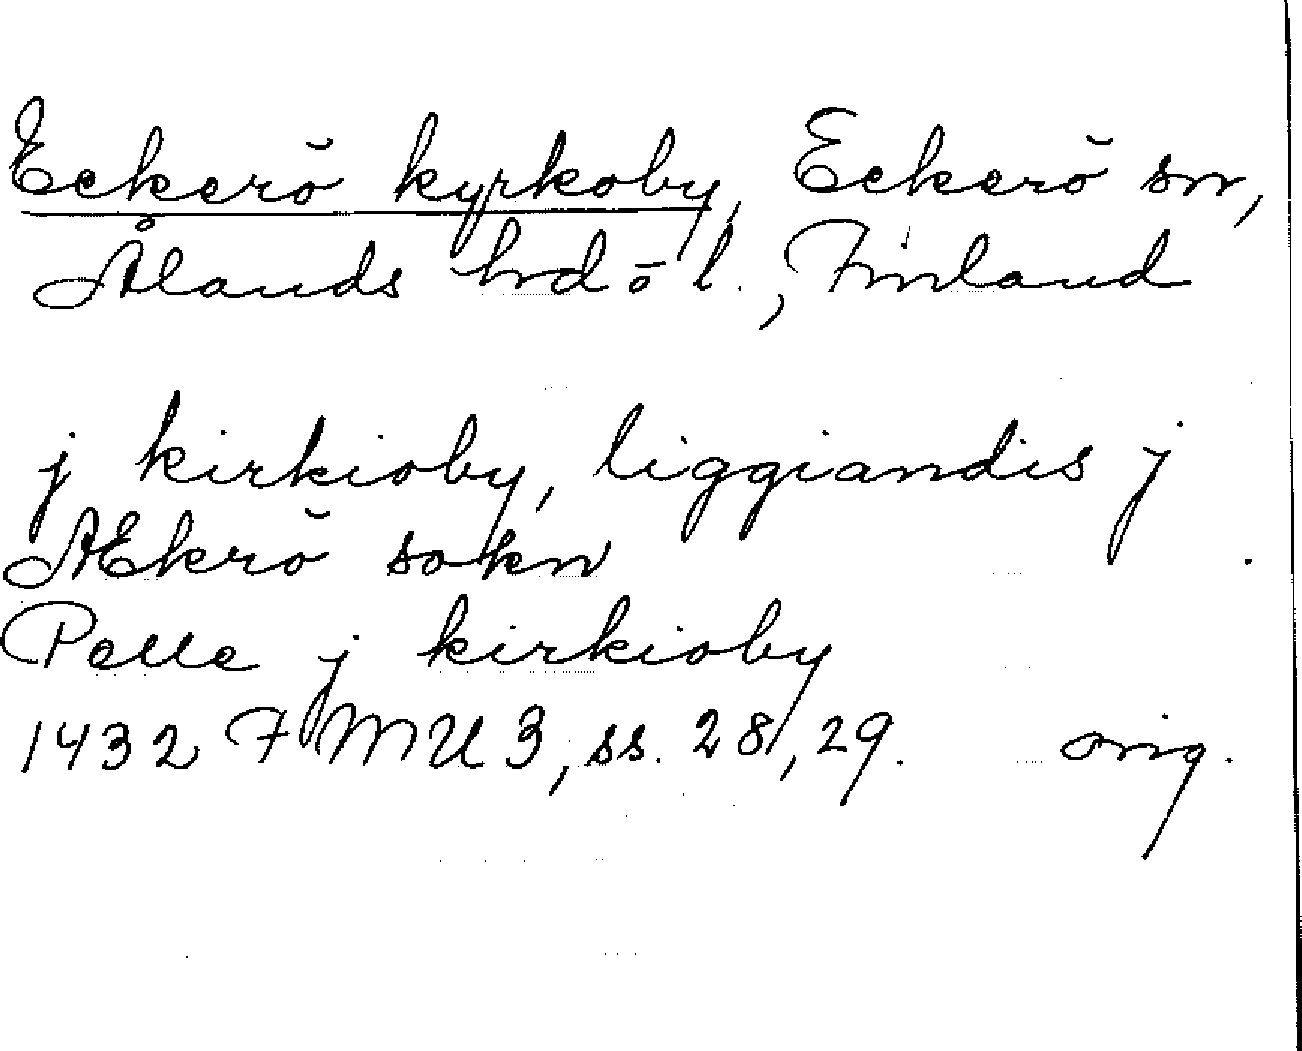 Eckerö kyrkoby, Eckerö sn,
Ålands hd o l., Finland
j kirkioby, liggiandis j
Ækerö sokn
Pelle j kirkioby
1432 FMU 3, ss. 28, 29. orig.